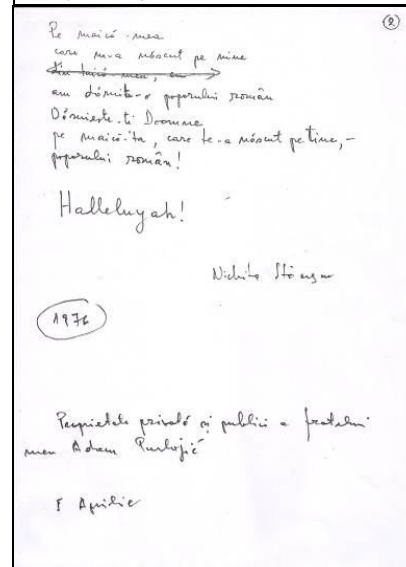 2
Pe maică-mea
care m-a născut pe mine
din taică-meu, am
am dărnuit-o poporului român
Dăruiește-ți Doomne
pe maică-ta, care te-a născut pe tine, -
poporului român!
Halleluyah!
Nichita Stănescu
1976
Proprietate privată și publică a fratelui
meu Adam Puslojić
I Aprilie